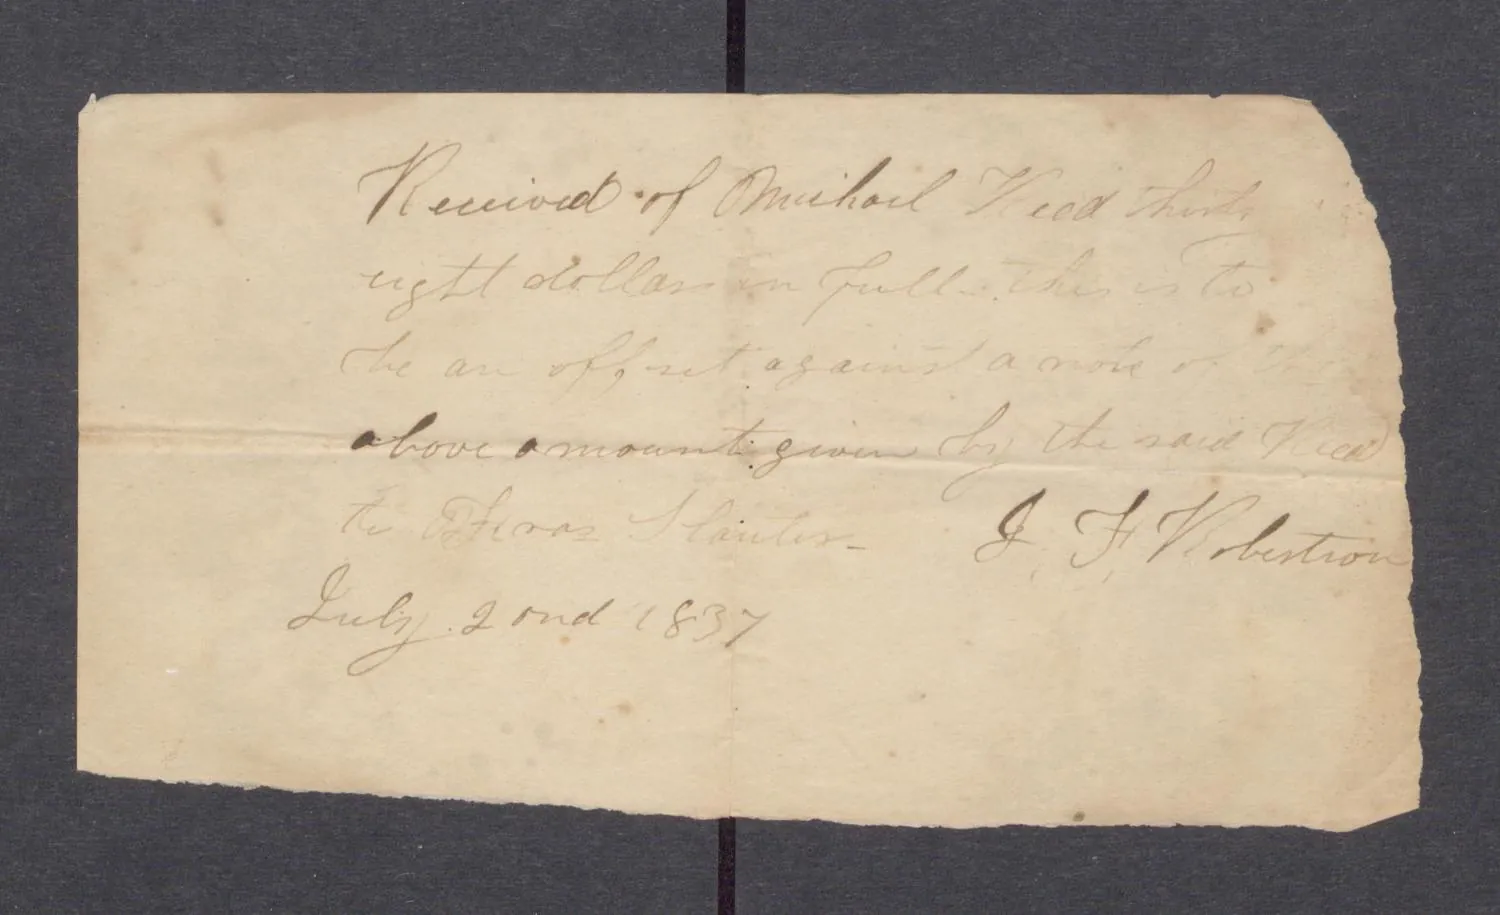 Received of Michael Reed thirty
eight dollars in full this is to
be an offset against a note of the
above amount given by the said Reed
to Slauter J. F. Robertson
July 2ond 1837